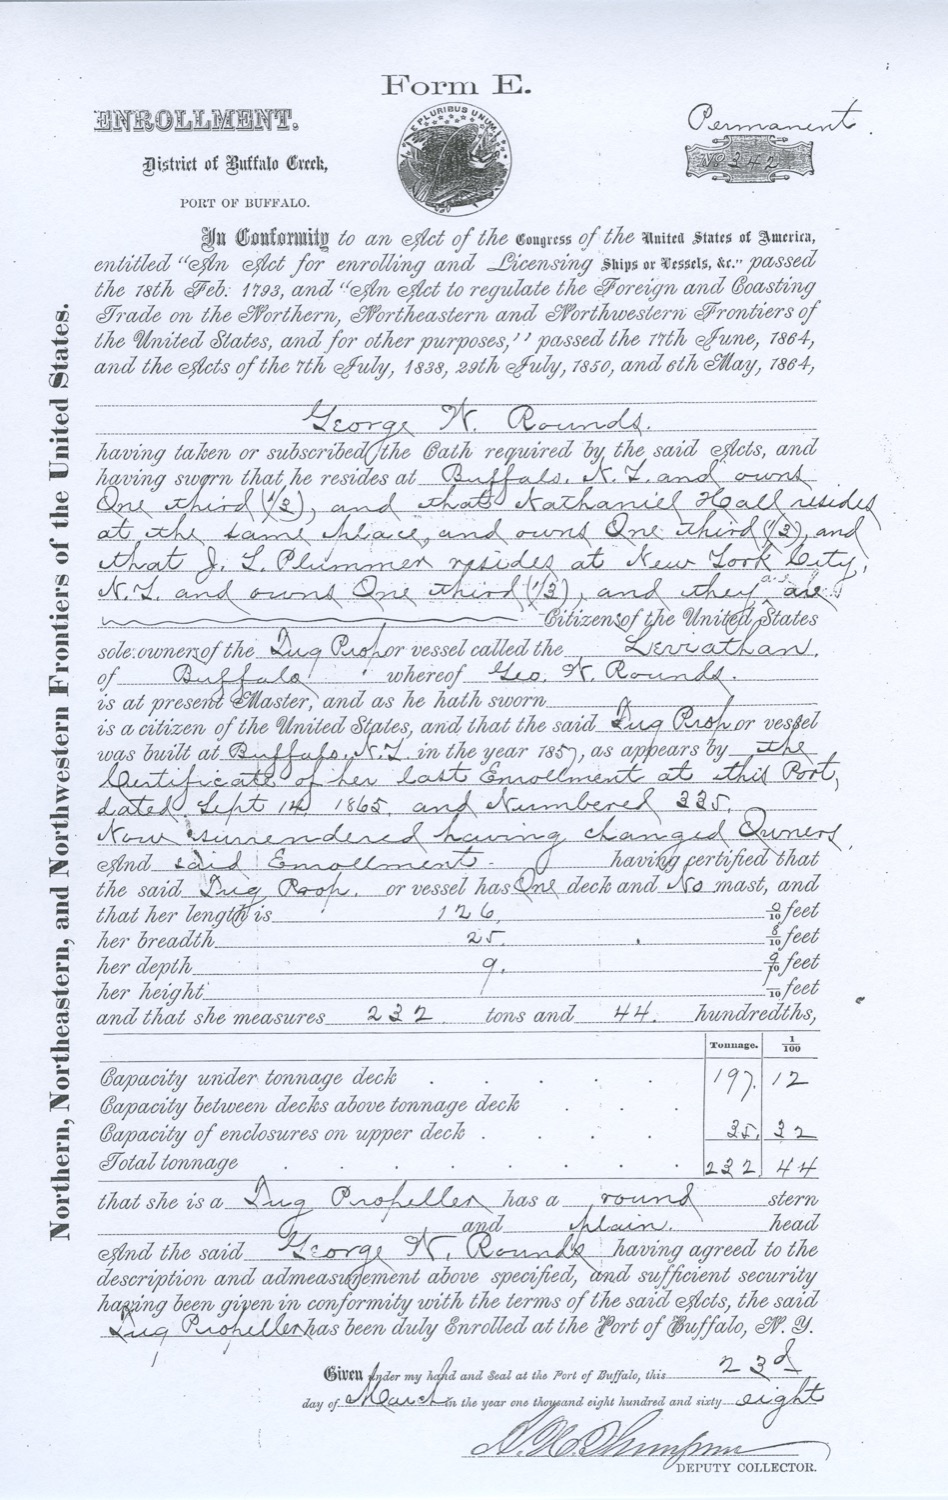 Form E.
ENROLLMENT.
District of Buffalo Creek,
PORT OF BUFFALO.
E PLURIBUS UNUM
Permanent.
No 342
In Conformity to an Act of the Congress of the United States of America,
entitled "An Act for enrolling and Licensing Ships or Vessels, &c." passed
the 18th Feb: 1793, and "An Act to regulate the Foreign and Coasting
Trade on the Northern, Northeastern and Northwestern Frontiers of
the United States, and for other purposes,'' passed the 17th June, 1864,
and the Acts of the 7th July, 1838, 29th July, 1850, and 6th May, 1864,
George W. Rounds.
having taken or subscribed the Oath required by the said Acts, and
having sworn that he resides at Buffalo. N.Y. and owns
One third (1/3), and that Nathaniel Hall resides
at the same place, and owns One third (1/3), and
that J. L. Plummer resides at New York City,
N.Y. and owns One third (1/3), and they are
Citizens of the United States
sole owners of the Tug Prop or vessel called the Leviathan.
of Buffalo whereof Geo. W. Rounds.
is at present Master, and as he hath sworn
is a citizen of the United States, and that the said Tug Prop or vessel
was built at Buffalo, N.Y. in the year 1857, as appears by the
Certificate of her last Enrollment at this Port,
dated. Sept 14 1865. and Numbered 335.
Now surrendered having changed Owners,
And said Enrollment. having certified that
the said Tug Prop. or vessel has One deck and No mast, and
that her length is 126. 0/10 feet
her breadth 25. 8/10 feet
her depth 9. 9/10 feet
her height /10 feet
and that she measures 232 tons and 44. hundredths,
Tonnage. 1/100
Capacity under tonnage deck 197. 12
Capacity between decks above tonnage deck
Capacity of enclosures on upper deck 35. 32
Total tonnage 232 44
that she is a Tug Propeller has a round stern
and plain. head
And the said George W. Rounds having agreed to the
description and admeasurement above specified, and sufficient security
having been given in conformity with the terms of the said Acts, the said
Tug Propeller has been duly Enrolled at the Port of Buffalo, N. Y.
Given under my hand and Seal at the Port of Buffalo, this 23d
day of March in the year one thousand eight hundred and sixty eight
DEPUTY COLLECTOR.
Northern, Northeastern, and Northwestern Frontiers of the United States.